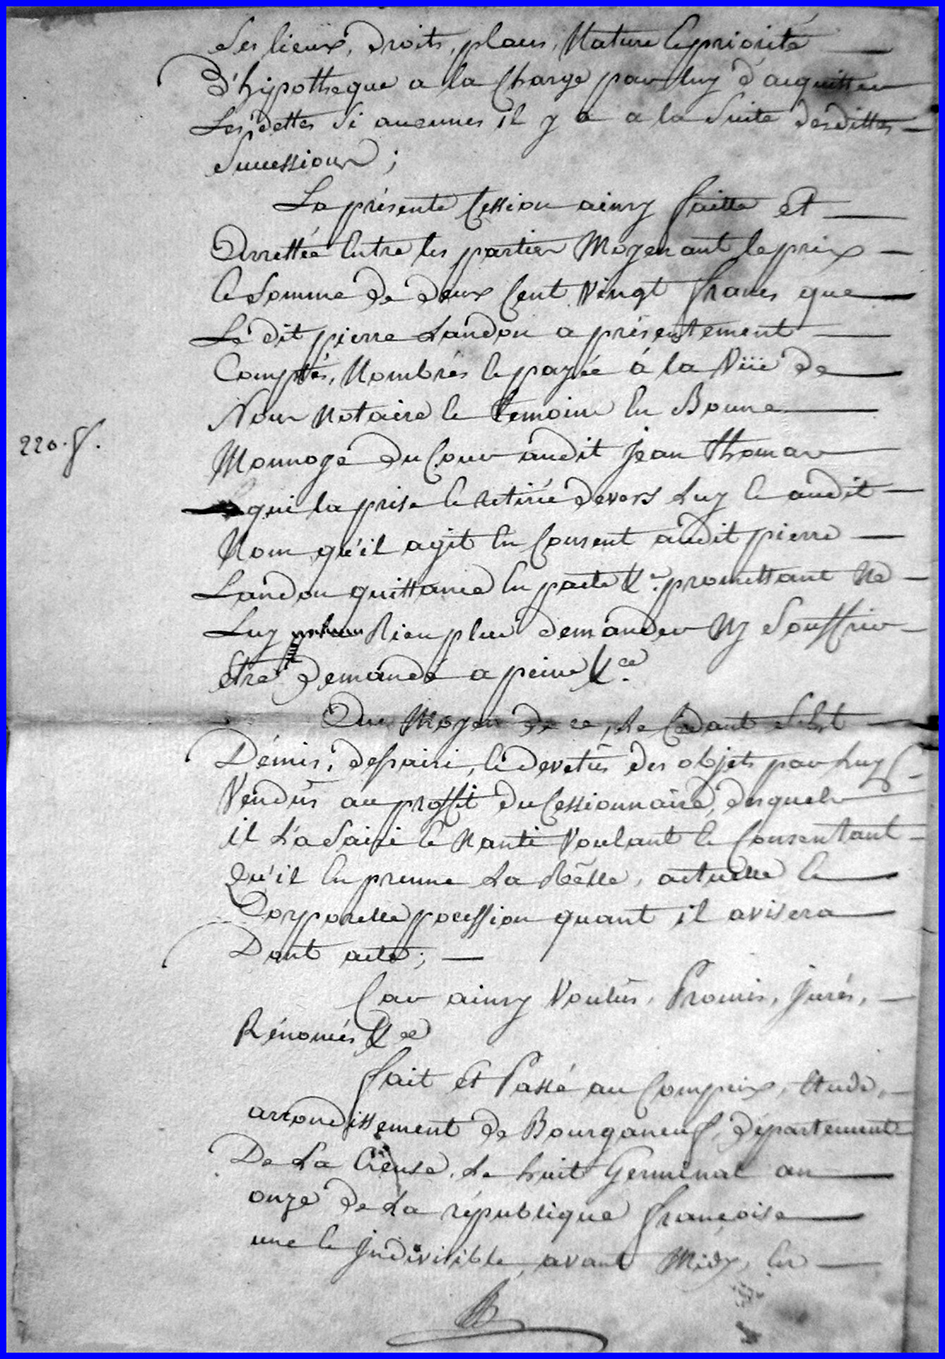 Ses lieux, droits, place, Nature & priorité
D'hypotheque a la Charge par luy d'acquitter
Les dettes Si aucunes il y a a la Suite desdittes
Successions ;
La présente Cession ainsy faitte et
Arrettée Entre les parties Moyenant le prix
& Somme de deux Cent Vingt francs que
Le dit pierre Landon a présentement
Comptés, Nombrés & payée à la Vüe de
Nous Notaire & temoins En Bonne
220. f.
Monnoye du Cour audit Jean Thomas
qui la prise & retirée devers Luy & audit
Nom qu'il agit En Consent audit pierre
Landon quittance En pacte &.a promettant Ne
Luy Rien plus demander Ny Souffrir
Etre Demandé a peine &.ca
Au Moyen de ce, Le Cedant S'est
Démis, desaisi, & devetüs des objets par Luy
Vendüs au proffit du Cessionnaire, desquels
il L'a Saisi & Nanti Voulant & Consentant
Qu'il En prenne La Réelle, actuelle &
Corporelle pocession quant il avisera
Dont acte ;
Car ainsy Voulüs, Promis, Jurés,
Rénoncés &ca
fait et Passé au Compeix, Etude,
arrondissement de Bourganeuf, département
De La Creuse, Le huit Germinal an
onze de La république françoise
une & Jndivisible, avant Midy, En